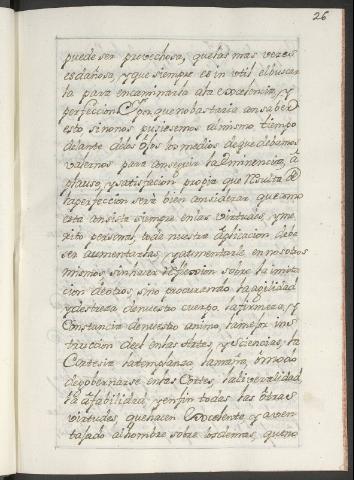 26
puede ser provechosa, que las mas vezes
es dañosa, y que siempre es in vtil el buscar
la para encaminarla ala excelencia, y
perfeccion. Y por que no bastaria an saber
esto sinonos pusiesemos al mismo tiempo
delante delos ojos los medios de que debemos
valernos para conseguir la eminencia, a
plauso, y satisfacion propia que resulta de
la perfeccion sera bien considerar que como
esta consiste siempre enlas virtudes, y me
rito personal, toda nuestra aplicacion debe
ser aumentarlas, y alimentarle en nosotros
mismos, sin hacer reflexion sobre la imita
cion de otros, sino procurando la agilidad
y destreza de nuestro cuerpo, la firmeza, y
Constancia de nuestro animo, la mejor ins
truccion del enlas Artes, y sciencias, la
Cortesia la templanza la maña, ò modo
de gobernarse enlas Cortes, la liveralidad
la afabilidad, y en fin todas las otras
virtudes que hacen Excelente, y aven
tajado al hombre sobre los demas, que no